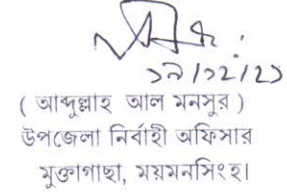 ১৯/১২/২১
( আব্দুল্লাহ আল মনসুর )
উপজেলা নির্বাহী অফিসার
মুক্তাগাছা, ময়মনসিংহ।